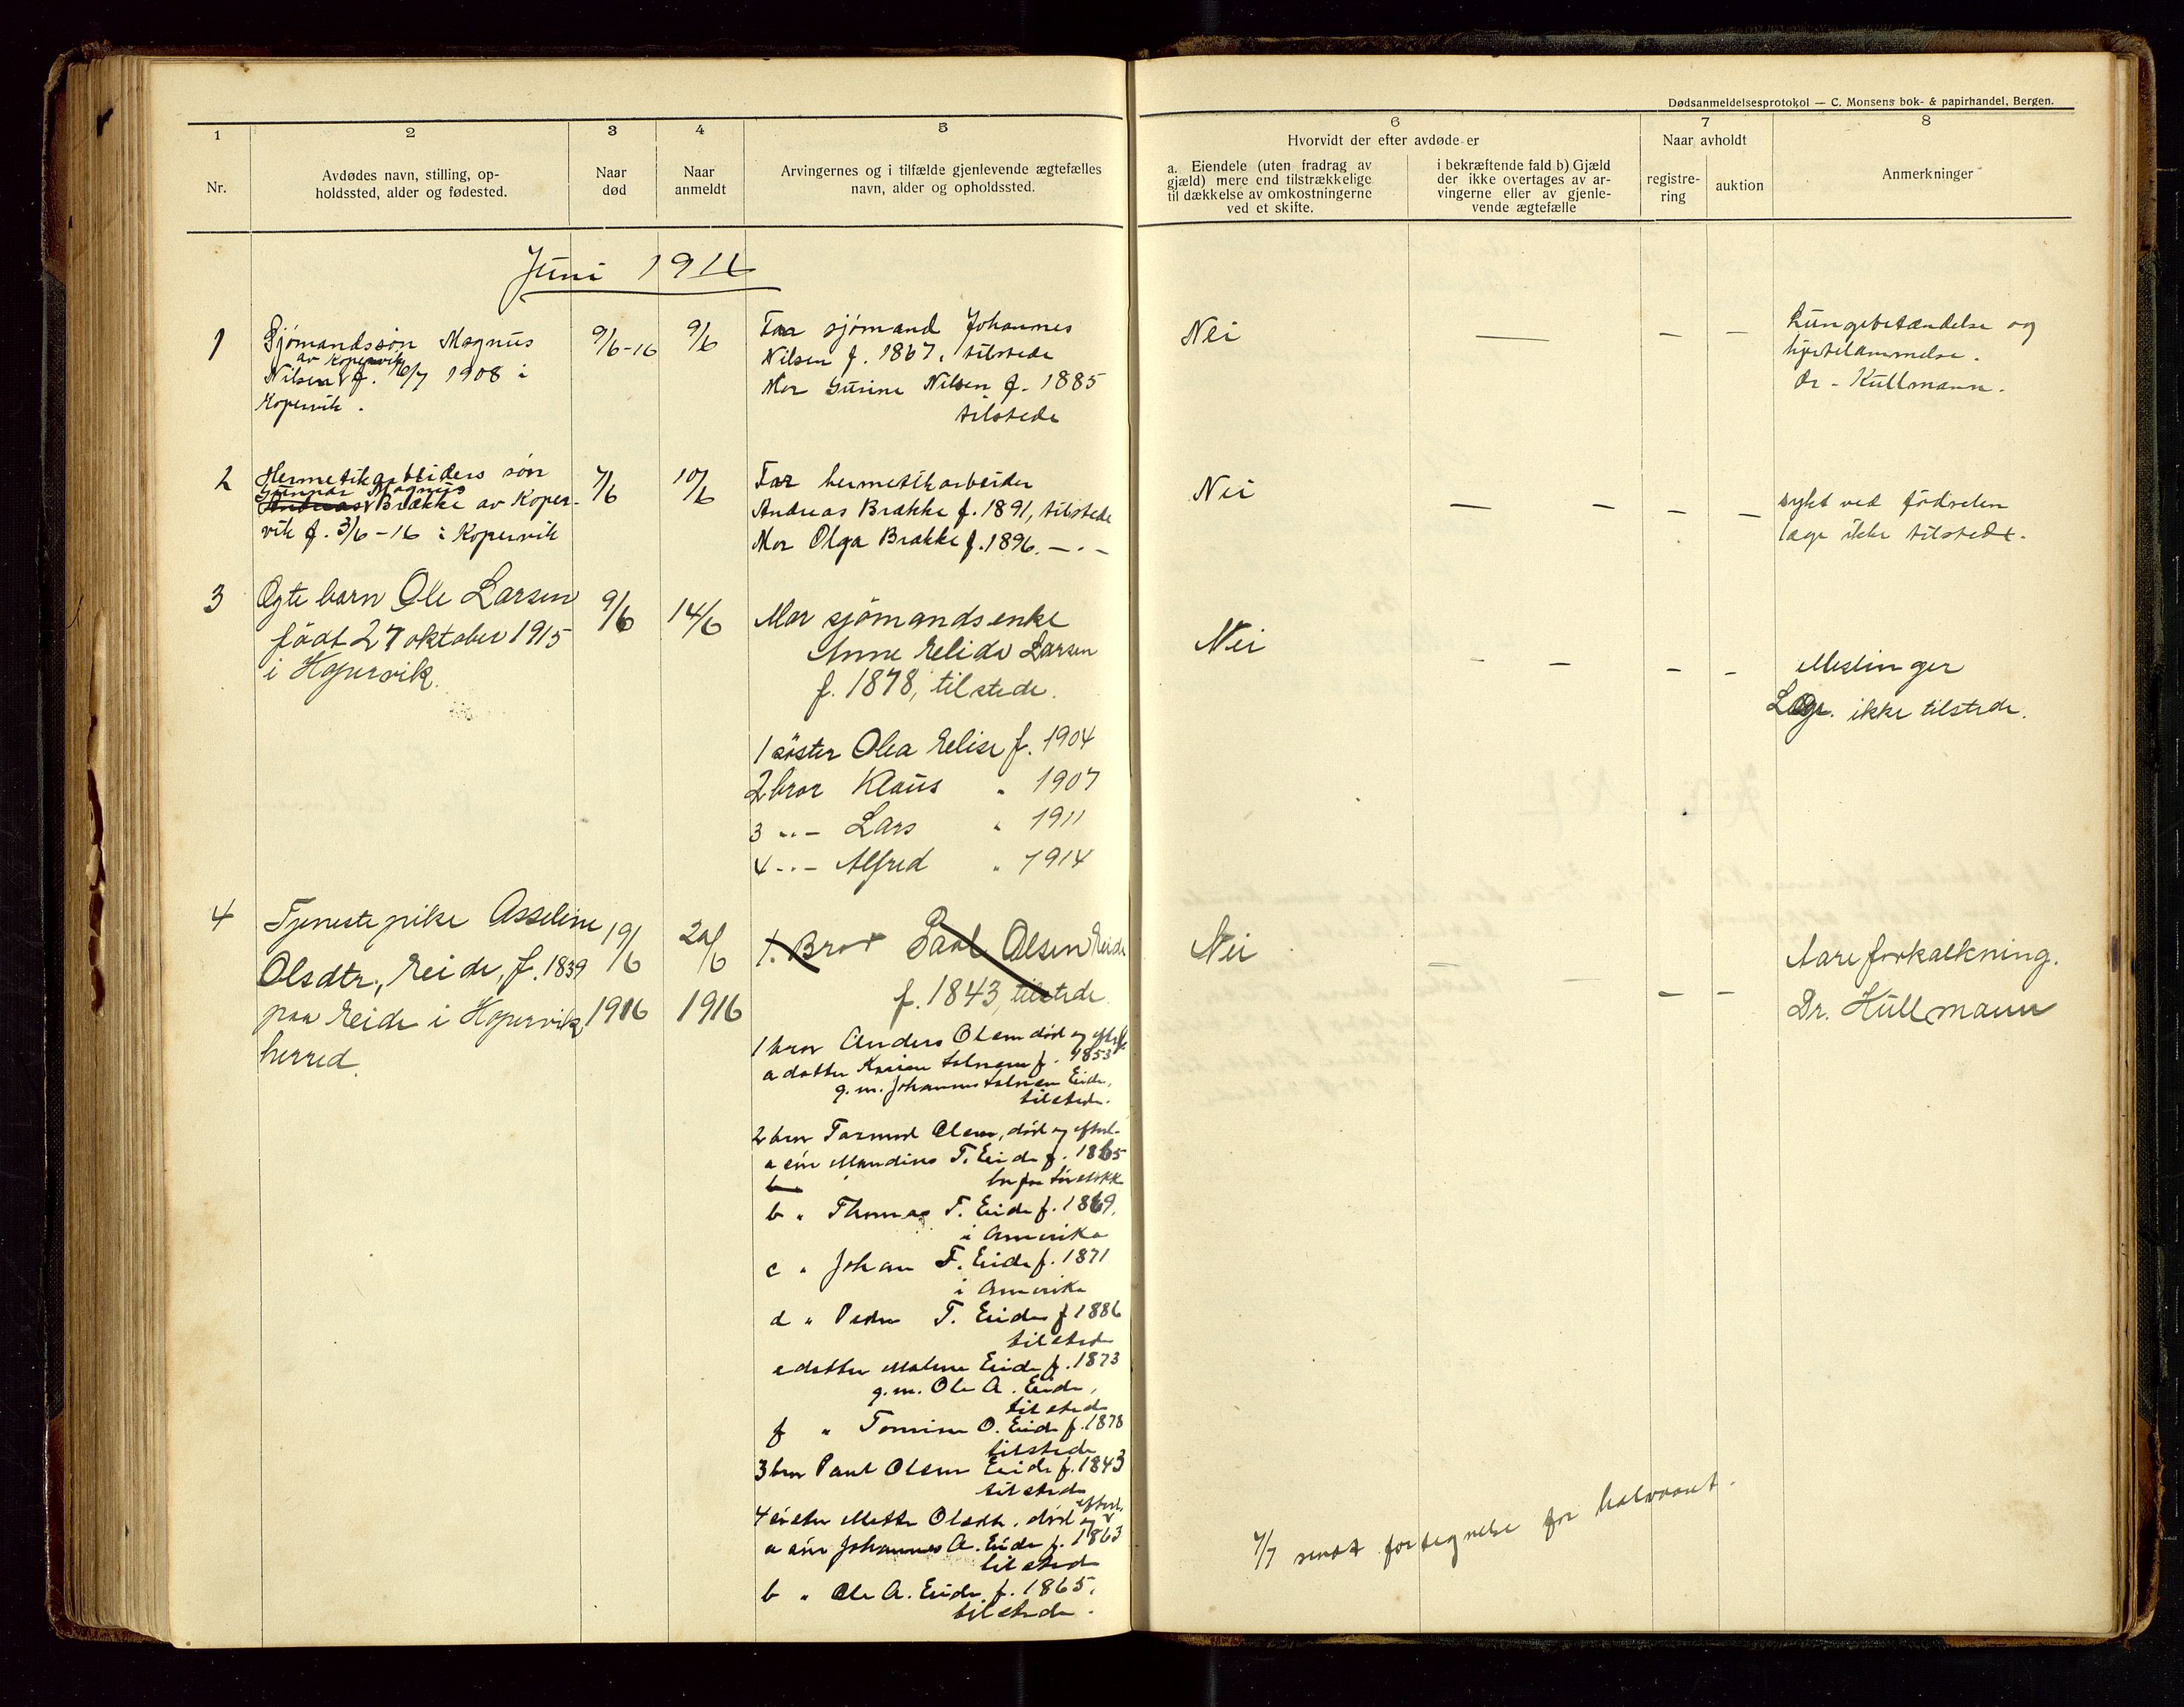 Dødsanmeldelsesprotokol — C. Monsens bok- & papirhandel, Bergen.
1
2
3
4
5
6
7
8
Nr.
Avdødes navn, stilling, op-
holdssted, alder og fødested.
Naar
død
Naar
anmeldt
Arvingernes og i tilfælde gjenlevende ægtefælles
navn, alder og opholdssted.
Hvorvidt der efter avdøde er
a. Eiendele (uten fradrag av
gjæld) mere end tilstrækkelige
til dækkelse av omkostningerne
ved et skifte.
i bekræftende fald b) Gjæld
der ikke overtages av ar-
vingerne eller av gjenle-
vende ægtefælle
Naar avholdt
registre-
ring
auktion
Anmerkninger
Juni 1916
1
Sjømandssøn Magnus
av Kopervik
Nilsen f. 6/7 1908 i
Kopervik.
9/6-16
9/6
Far sjømand Johannes
Nilsen f. 1867, tilstede
Mor Gurine Nilsen f. 1885
tilstede
Nei
— — —
Lungebetændelse og
hjertelammelse.
Dr. Kullmann.
2
Hermetikarbeiders søn
Gunnar Magnus
Andreas Brække av Koper-
vik f. 3/6-16 i Kopervik
7/6
10/6
Far hermetikarbeider
Andreas Brække f. 1891, tilstede
Mor Olga Brække f. 1896. — " —
Nei
— — — —
sykt ved fødselen
læge ikke tilstede.
3
Ægte barn Ole Larsen
født 27 oktober 1915
i Kopervik.
9/6
14/6
Mor sjømandsenke
Anne Elida Larsen
f. 1878, tilstede.
1 søster Olea Elise f. 1904
2 bror Klaus " 1907
3 -"- Lars " 1911
4 -"- Alfred " 1914
Nei
— — — —
Meslinger
Læge ikke tilstede.
4
Tjenestepike Asseline
Olsdtr. Eide, f. 1839
paa Eide i Kopervik
herred.
19/6
1916
20/6
1916
1. Bror Paul Olsen Eide
f. 1843, tilstede.
1 bror Anders Olsen død og efterl.
a datter Karine Salmsen f. 1853
g. m. Johannes Salmsen Eide,
tilstede.
2 bror Tormod Olsen, død og efterl.
a søn Mandius T. Eide f. 1865
b
b " Thomas T. Eide f. 1869.
i Amerika
c " Johan T. Eide f. 1871
i Amerika
d " Peder T. Eide f 1886
tilstede
e datter Malene Eide f. 1873
g. m. Ole A. Eide,
tilstede
f " Tomine O. Eide f. 1878
tilstede
3 bror Paul Olsen Eide f. 1843
tilstede
4 søster Mette Olsdtr. død og efterl.
a søn Johannes A. Eide f. 1863
tilstede
b " Ole A. Eide f. 1865.
tilstede.
Nei
— — — —
Aareforkalkning.
Dr. Kullmann
7/7 sendt fortegnelse for halvaaret.